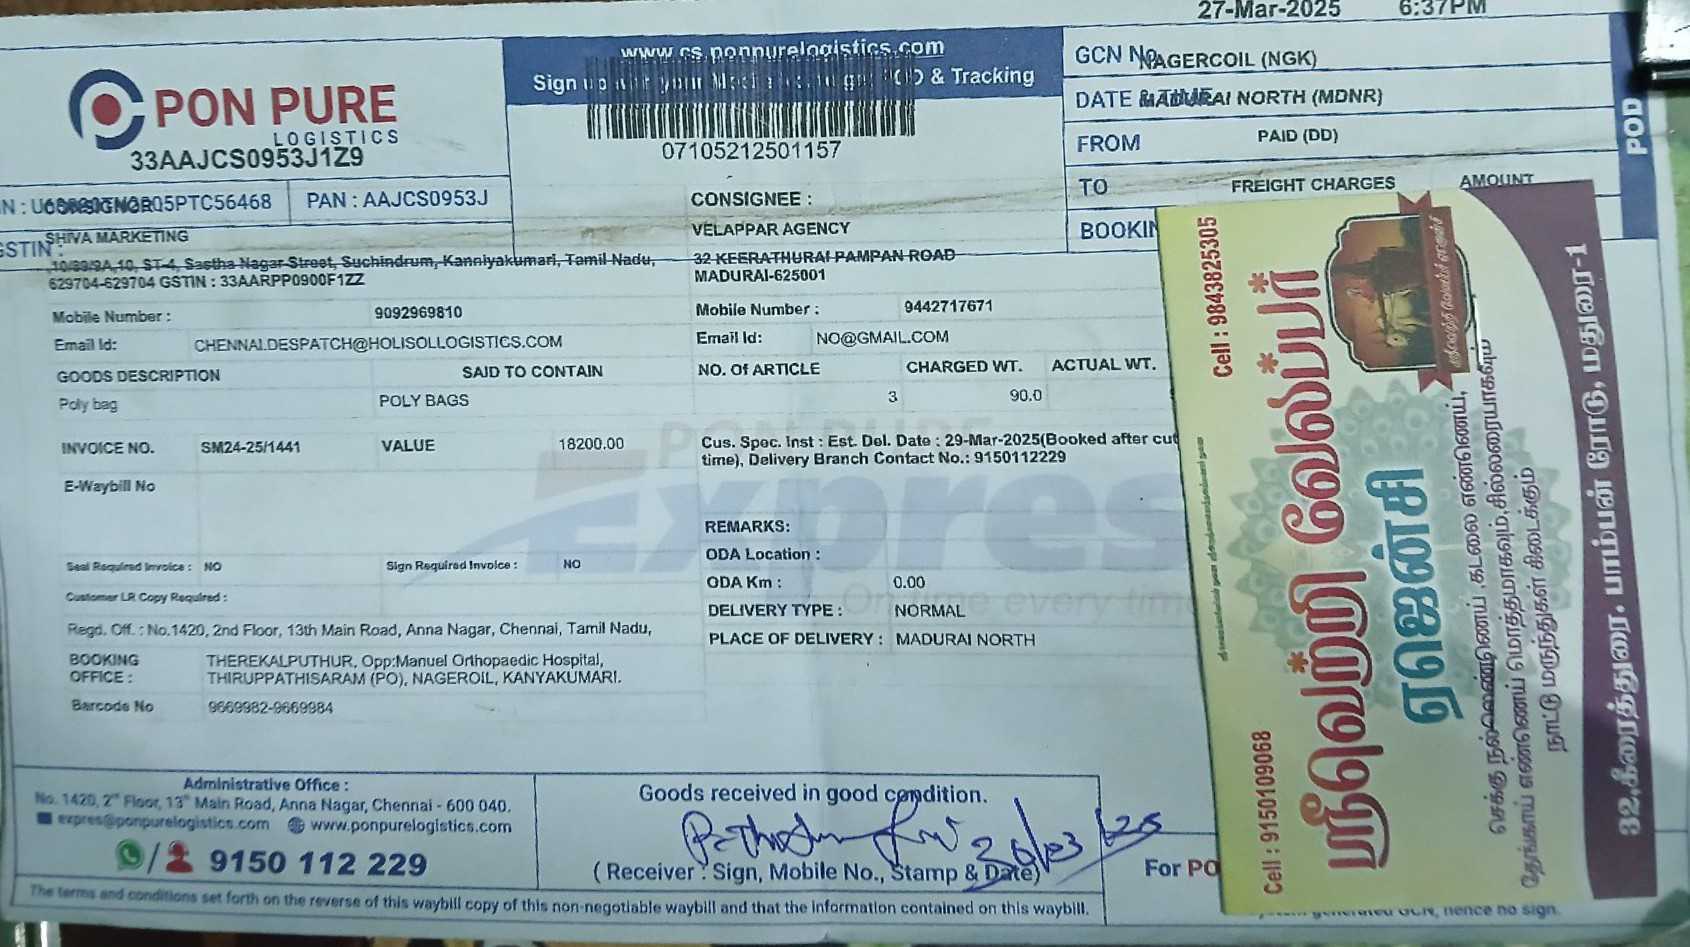 27-Mar-2025 6:37PM
PON PURE
LOGISTICS
33AAJCS0953J1Z9
PAN : AAJCS0953J
www.cs.ponpurelogistics.com
Sign up & Tracking
07105212501157
GCN No.
NAGERCOIL (NGK)
DATE &
MADURAI NORTH (MDNR)
FROM
PAID (DD)
TO
FREIGHT CHARGES AMOUNT
POD
CONSIGNOR
SHIVA MARKETING
10/89/9A,10, ST-4, Sastha Nagar Street, Suchindrum, Kanniyakumari, Tamil Nadu,
629704-629704 GSTIN : 33AARPP0900F1ZZ
Mobile Number : 9092969810
Email Id: CHENNAI.DESPATCH@HOLISOLLOGISTICS.COM
CONSIGNEE :
VELAPPAR AGENCY
32 KEERATHURAI PAMPAN ROAD
MADURAI-625001
Mobile Number : 9442717671
Email Id: NO@GMAIL.COM
GOODS DESCRIPTION SAID TO CONTAIN NO. Of ARTICLE CHARGED WT. ACTUAL WT.
Poly bag POLY BAGS 3 90.0
INVOICE NO. SM24-25/1441 VALUE 18200.00
E-Waybill No
Cus. Spec. Inst : Est. Del. Date : 29-Mar-2025(Booked after cut
time), Delivery Branch Contact No.: 9150112229
REMARKS:
ODA Location :
ODA Km : 0.00
DELIVERY TYPE : NORMAL
PLACE OF DELIVERY : MADURAI NORTH
Express
On time every time
Seal Required Invoice : NO Sign Required Invoice : NO
Customer LR Copy Required :
Regd. Off. : No.1420, 2nd Floor, 13th Main Road, Anna Nagar, Chennai, Tamil Nadu,
BOOKING OFFICE : THEREKALPUTHUR, Opp:Manuel Orthopaedic Hospital,
THIRUPPATHISARAM (PO), NAGEROIL, KANYAKUMARI.
Barcode No 9669982-9669984
Administrative Office :
No. 1420, 2nd Floor, 13th Main Road, Anna Nagar, Chennai - 600 040.
expres@ponpurelogistics.com www.ponpurelogistics.com
9150 112 229
Goods received in good condition.
30/03/25
( Receiver : Sign, Mobile No., Stamp & Date)
For PO
The terms and conditions set forth on the reverse of this waybill copy of this non-negotiable waybill and that the information contained on this waybill.
GCN, hence no sign.
Cell : 9150109068 Cell : 9843825305
ஸ்ரீவெற்றி வேலப்பர்
ஏஜென்சி
செக்கு நல்லெண்ணெய், கடலை எண்ணெய்,
தேங்காய் எண்ணெய் மொத்தமாகவும், சில்லரையாகவும்
நாட்டு மருந்துகள் கிடைக்கும்
32, கீரைத்துரை, பாம்பன் ரோடு, மதுரை-1